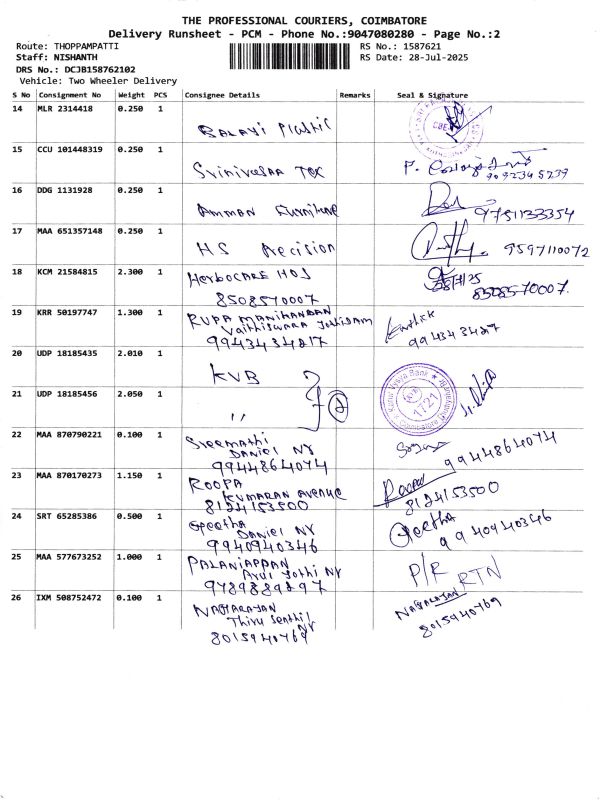 THE PROFESSIONAL COURIERS, COIMBATORE
Delivery Runsheet - PCM - Phone No.:9047080280 - Page No.:2
Route: THOPPAMPATTI
RS No.: 1587621
Staff: NISHANTH
RS Date: 28-Jul-2025
DRS No.: DCJB158762102
Vehicle: Two Wheeler Delivery
S No Consignment No Weight PCS Consignee Details Remarks Seal & Signature
14 MLR 2314418 0.250 1
Balaji Plastic
15 CCU 101448319 0.250 1
Srinivasaa Tex
9092345239
16 DDG 1131928 0.250 1
Amman Furniture
9751133354
17 MAA 651357148 0.250 1
HS Precision
9597110072
18 KCM 21584815 2.300 1
Herbocare HOJ
8508570007
8508570007.
19 KRR 50197747 1.300 1
RUPA MANIKANDAN
Vaithiswara Joshisam
9943434217
Karthik
9943434217
20 UDP 18185435 2.010 1
KVB
2
21 UDP 18185456 2.050 1
"
Karur Vysya Bank
1721
Coimbatore
22 MAA 870790221 0.100 1
Sreemathi
Daniel NY
9944864074
9944864074
23 MAA 870170273 1.150 1
ROOPA
KUMARAN Avenue
8124153500
Roopa
8124153500
24 SRT 65285386 0.500 1
Geetha
DANIEL NY
9940940346
Geetha
9940940346
25 MAA 577673252 1.000 1
PALANIAPPAN
Arul Jothi NY
9789889897
P/R RTN
26 IXM 508752472 0.100 1
NAGARAJAN
Thiru Senthil
NY
8015940769
NAGARAJAN
8015940769